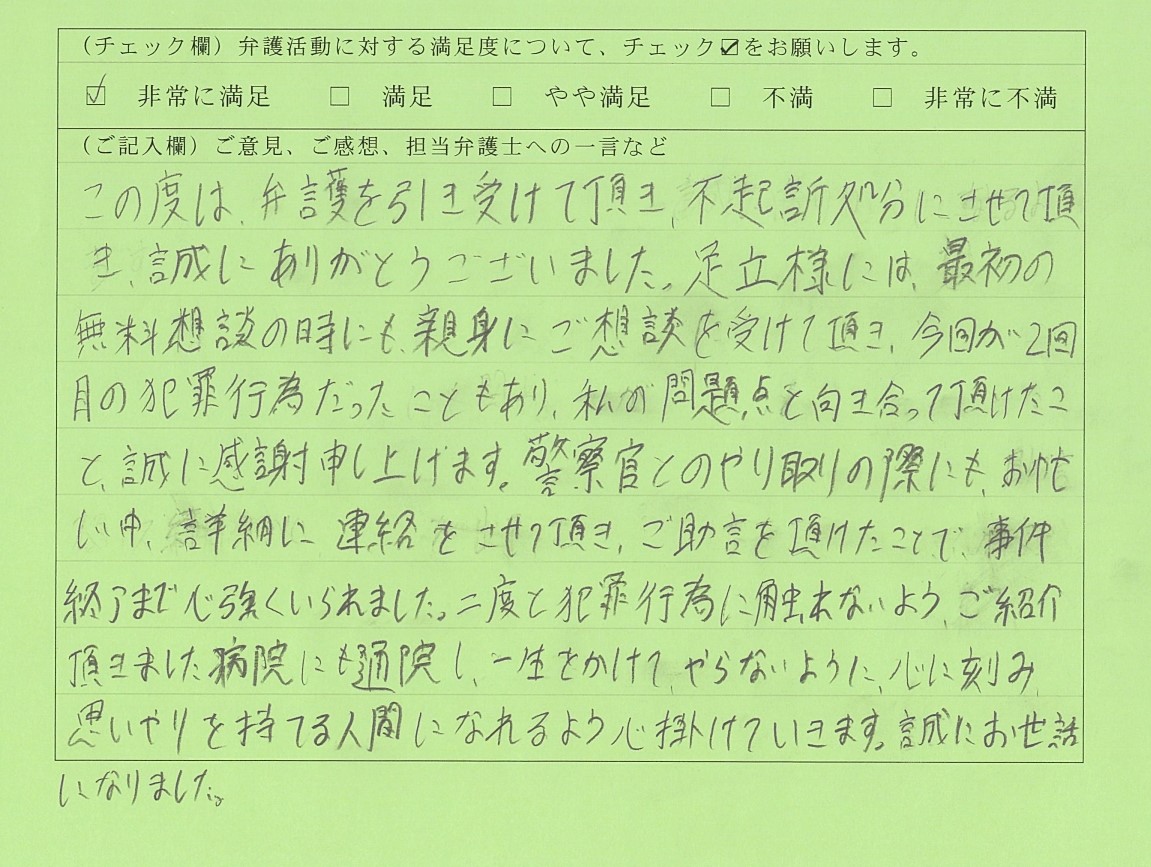 (チェック欄)弁護活動に対する満足度について、チェック☑をお願いします。
☑ 非常に満足 □ 満足 □ やや満足 □ 不満 □ 非常に不満
(ご記入欄)ご意見、ご感想、担当弁護士への一言など
この度は、弁護を引き受けて頂き、不起訴処分にさせて頂
き、誠にありがとうございました。足立様には、最初の
無料想談の時にも、親身にご想談を受けて頂き、今回が2回
目の犯罪行為だったこともあり、私の問題点と向き合って頂けたこ
と、誠に感謝申し上げます。警察官とのやり取りの際にも、お忙
しい中、詳細に連絡をさせて頂き、ご助言を頂けたことで、事件
終了まで心強くいられました。二度と犯罪行為に触れないよう、ご紹介
頂きました病院にも通院し、一生をかけて、やらないように、心に刻み、
思いやりを持てる人間になれるよう心掛けていきます。誠にお世話
になりました。